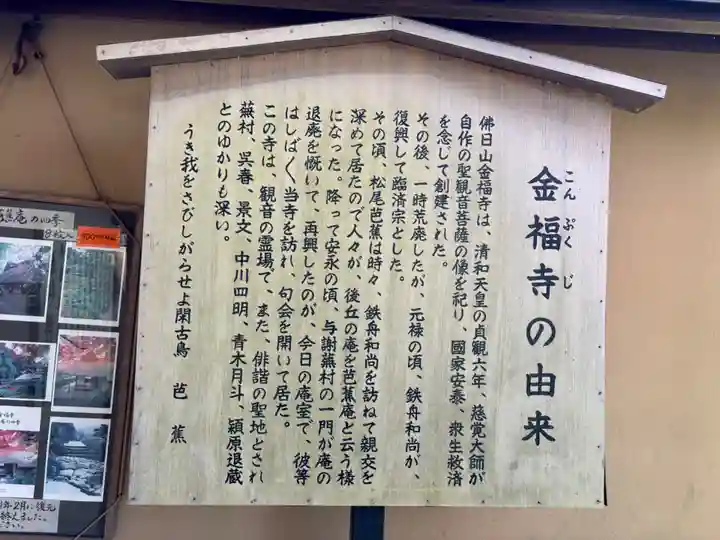 金福寺の由来
こんぷくじ
佛日山金福寺は、清和天皇の貞観六年、慈覚大師が
自作の聖観音菩薩の像を祀り、國家安泰、衆生救済
を念じて創建された。
その後、一時荒廃したが、元禄の頃、鉄舟和尚が、
復興して臨済宗とした。
その頃、松尾芭蕉は時々、鉄舟和尚を訪ねて親交を
深めて居たので人々が、後丘の庵を芭蕉庵と云う様
になった。降って安永の頃、与謝蕪村の一門が庵の
退廃を慨いて、再興したのが、今日の庵室で、彼等
はしば〱当寺を訪れ、句会を開いて居た。
この寺は、観音の霊場で、また、俳諧の聖地とされ
蕪村、呉春、景文、中川四明、青木月斗、潁原退蔵
とのゆかりも深い。
うき我をさびしがらせよ閑古鳥 芭蕉
蕉庵の四季
8枚入
年2月に復元
ました。
ださい。